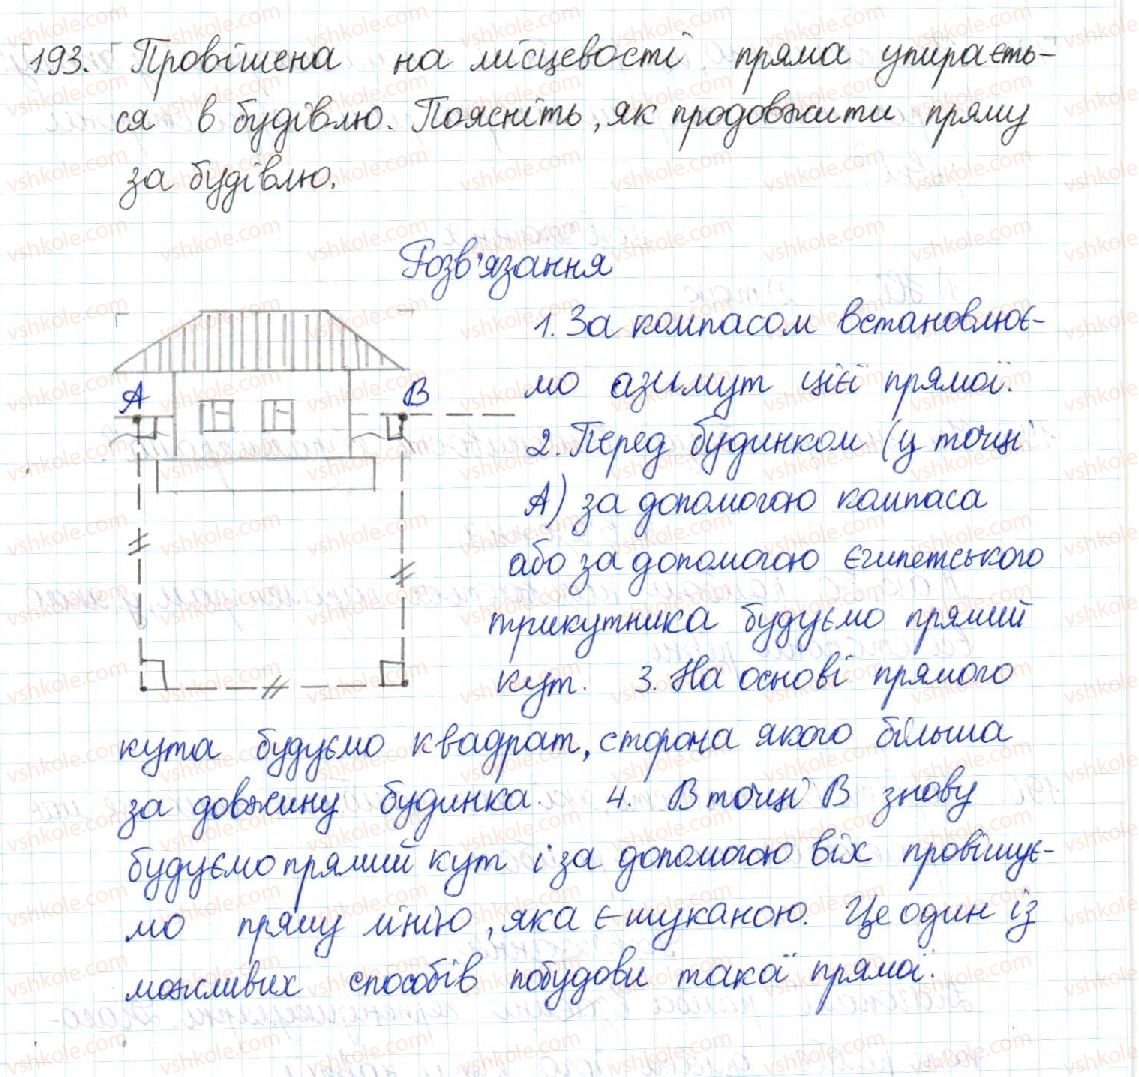 193. Провішена на місцевості пряма упираєть-
ся в будівлю. Поясніть, як продовжити пряму
за будівлю.
Розв'язання
1. За компасом встановлює-
мо азимут цієї прямої.
A B
2. Перед будинком (у точці
А) за допомогою компаса
або за допомогою єгипетського
трикутника будуємо прямий
кут. 3. На основі прямого
кута будуємо квадрат, сторона якого більша
за довжину будинка. 4. В точці В знову
будуємо прямий кут і за допомогою віх провішує-
мо пряму лінію, яка є шуканою. Це один із
можливих способів побудови такої прямої.